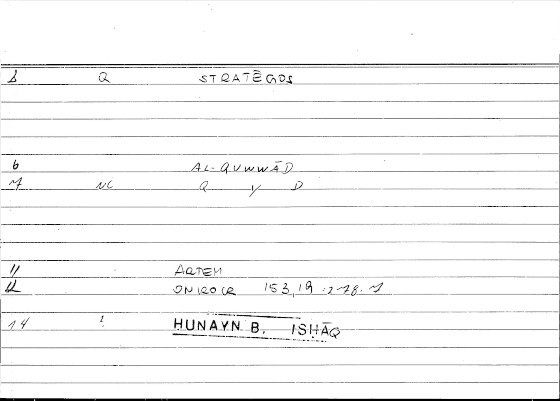 1 Q STRATĒGOS
6 AL-QUWWĀD
7 NC Q Y D
11 ARTEM
12 ONIROCR 153,19 : 278.7
14 ! HUNAYN B. ISḤĀQ